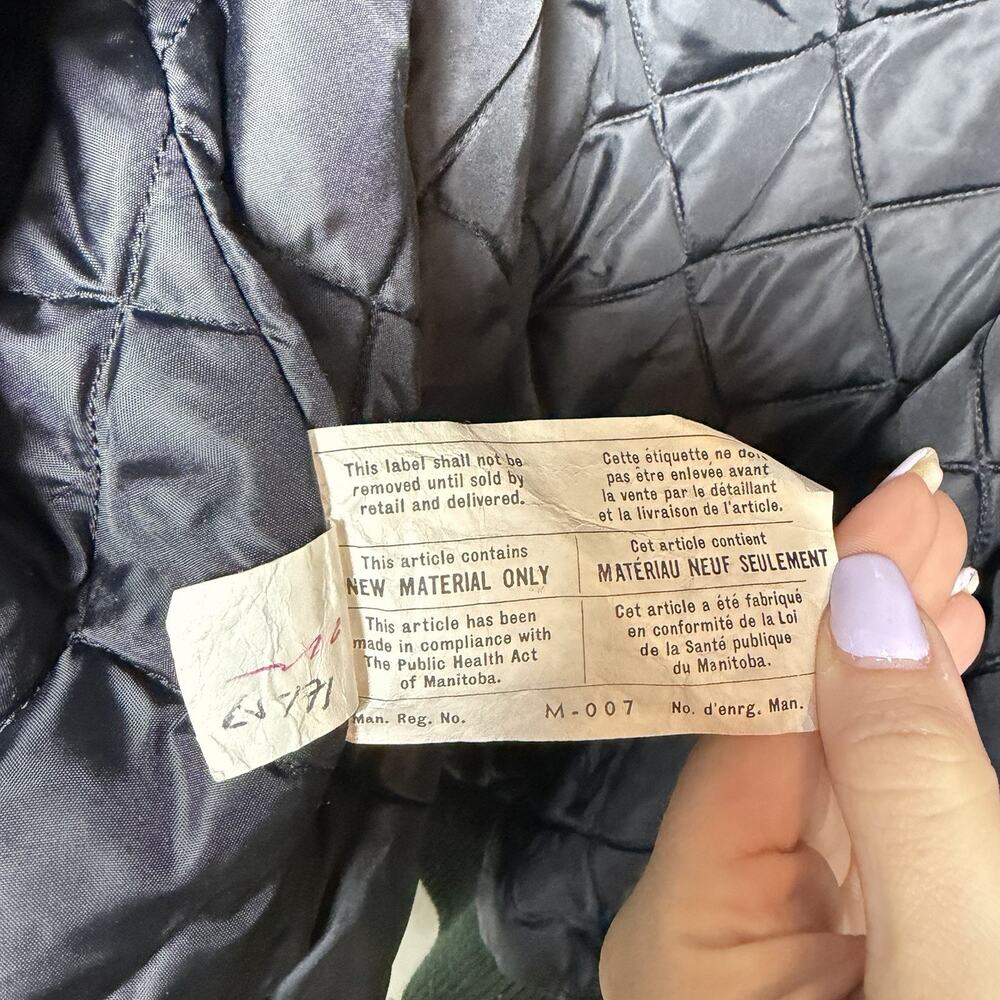 This label shall not be
removed until sold by
retail and delivered.
Cette étiquette ne doit
pas être enlevée avant
la vente par le détaillant
et la livraison de l'article.
This article contains
NEW MATERIAL ONLY
Cet article contient
MATÉRIAU NEUF SEULEMENT
This article has been
made in compliance with
The Public Health Act
of Manitoba.
Cet article a été fabriqué
en conformité de la Loi
de la Santé publique
du Manitoba.
Man. Reg. No. M-007 No. d'enrg. Man.